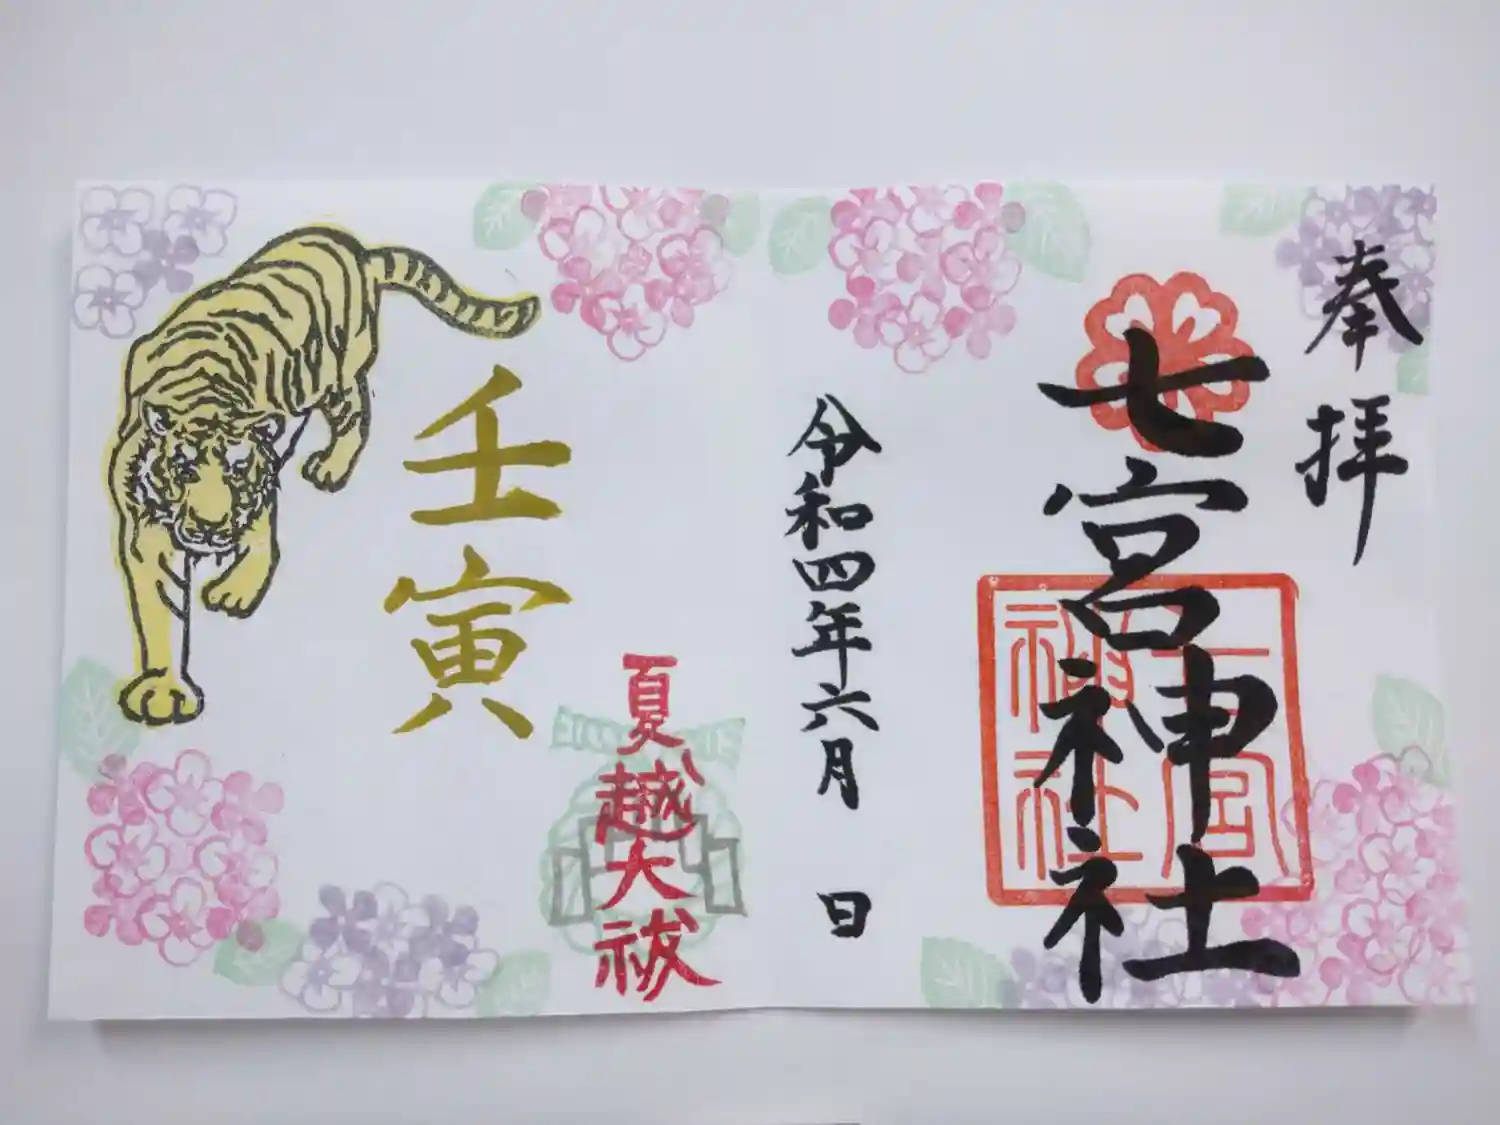 奉拝
七宮神社
七宮
神社
令和四年六月 日
夏越大祓
壬寅